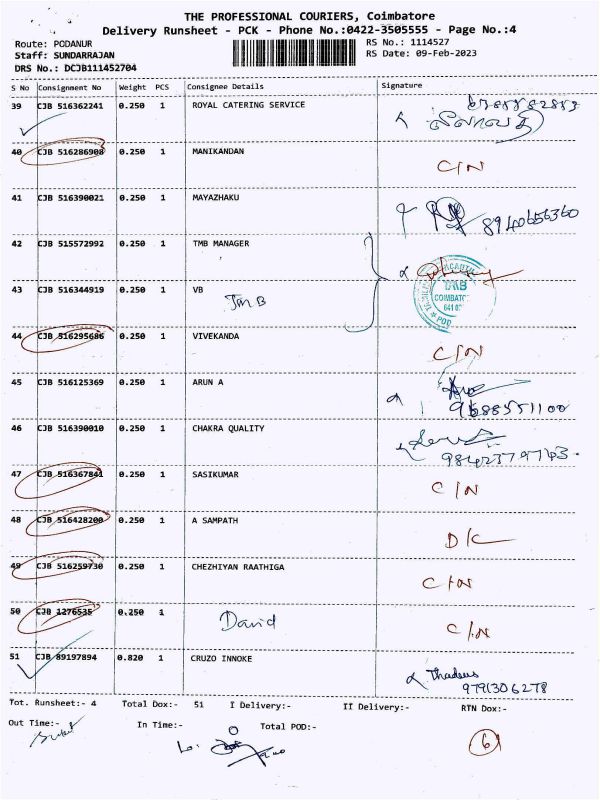 THE PROFESSIONAL COURIERS, Coimbatore
Delivery Runsheet - PCK - Phone No.:0422-3505555 - Page No.:4
Route: PODANUR RS No.: 1114527
Staff: SUNDARRAJAN RS Date: 09-Feb-2023
DRS No.: DCJB111452704
S No Consignment No Weight PCS Consignee Details Signature
39 CJB 516362241 0.250 1 ROYAL CATERING SERVICE
40 CJB 516286908 0.250 1 MANIKANDAN C/N
41 CJB 516390021 0.250 1 MAYAZHAKU 8940656360
42 CJB 515572992 0.250 1 TMB MANAGER
43 CJB 516344919 0.250 1 VB
TMB
TMB
COIMBATORE
44 CJB 516295686 0.250 1 VIVEKANDA C/N
45 CJB 516125369 0.250 1 ARUN A
9688551100
46 CJB 516390010 0.250 1 CHAKRA QUALITY
9842379743
47 CJB 516367841 0.250 1 SASIKUMAR C/N
48 CJB 516428200 0.250 1 A SAMPATH D/C
49 CJB 516259730 0.250 1 CHEZHIYAN RAATHIGA C/N
50 CJB 1276535 0.250 1 David C/N
51 CJB 89197894 0.820 1 CRUZO INNOKE
Thadeus
9791306278
Tot. Runsheet:- 4 Total Dox:- 51 I Delivery:- II Delivery:- RTN Dox:-
Out Time:- In Time:- Total POD:-
6